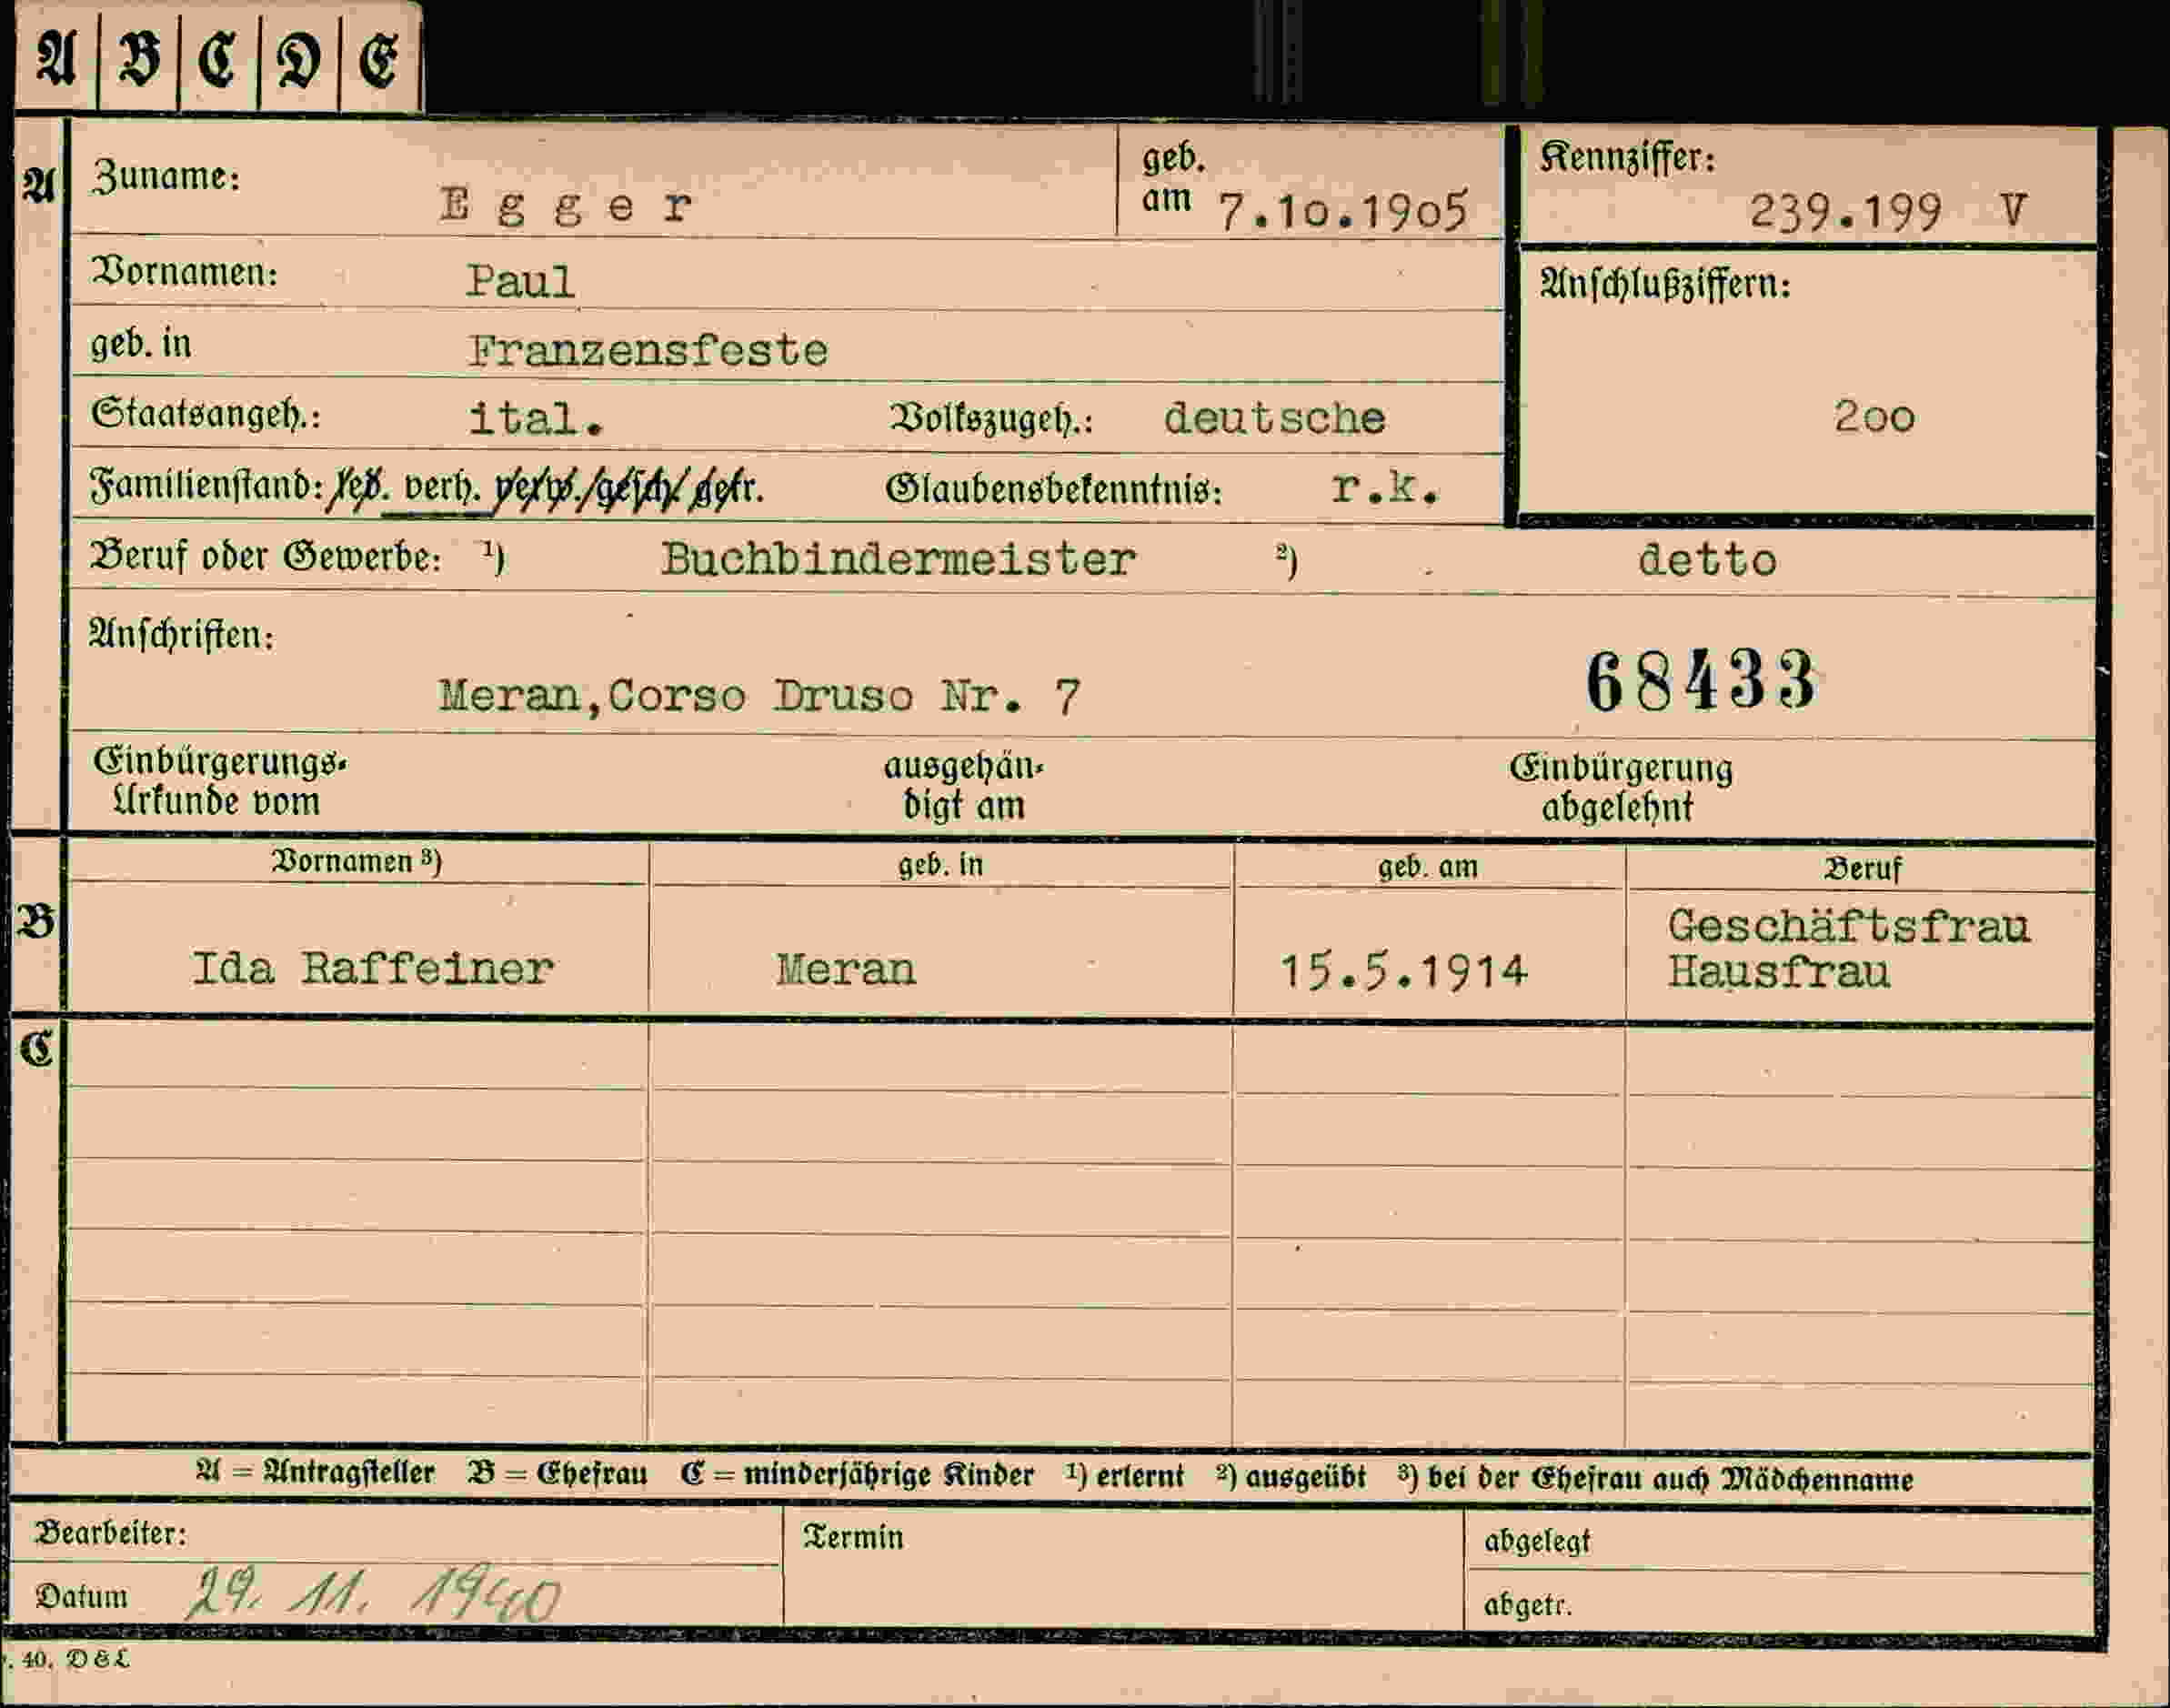 A B C D E
A Zuname: Egger geb. am 7.10.1905 Kennziffer: 239.199 V
Vornamen: Paul Anschlußziffern:
geb. in Franzensfeste
Staatsangeh.: ital. Volkszugeh.: deutsche 200
Familienstand: led. verh. verw. gesch. getr. Glaubensbekenntnis: r.k.
Beruf oder Gewerbe: ¹) Buchbindermeister ²) detto
Anschriften:
Meran,Corso Druso Nr. 7 68433
Einbürgerungs- ausgehän- Einbürgerung
Urkunde vom digt am abgelehnt
Vornamen ³) geb. in geb. am Beruf
B Geschäftsfrau
Ida Raffeiner Meran 15.5.1914 Hausfrau
C
A = Antragsteller B = Ehefrau C = minderjährige Kinder ¹) erlernt ²) ausgeübt ³) bei der Ehefrau auch Mädchenname
Bearbeiter: Termin abgelegt
Datum 29. 11. 1940 abgetr.
. 40. D & L